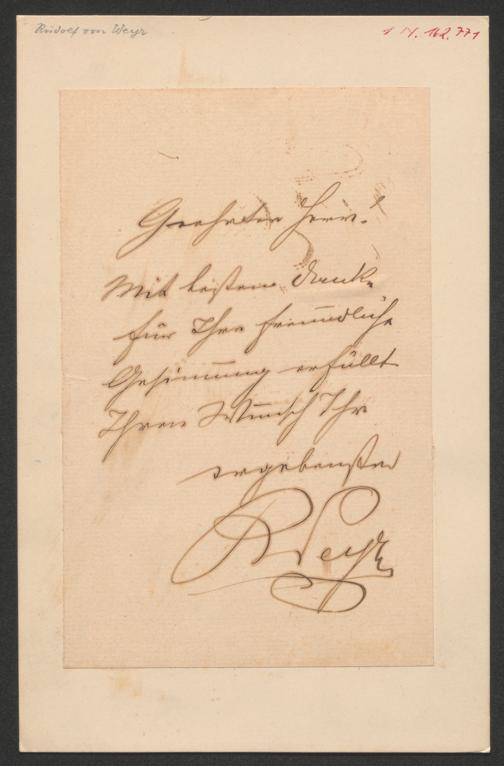 Rudolf von Weyr
I N. 162.771
Geehrter Herr!
Mit bestem Dank
für Ihre freundliche
Gesinnung erfüllt
Ihren Wunsch Ihr
ergebenster
R Weyr